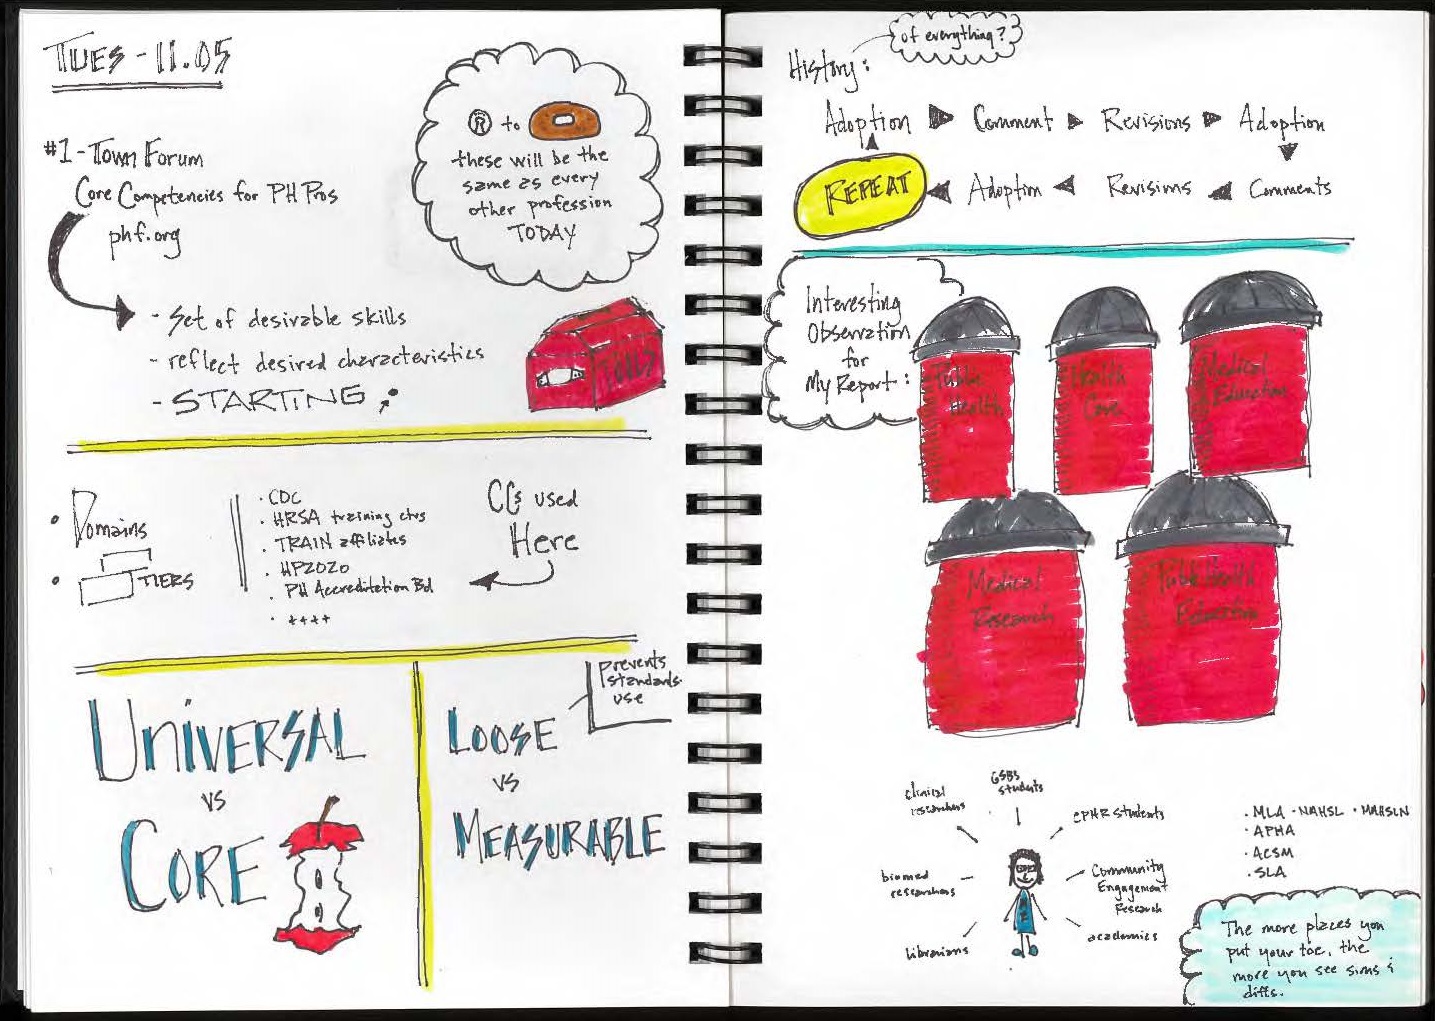 TUES - 11.05
#1 - Town Forum
Core Competencies for PH Pros
phf.org
- Set of desirable skills
- reflect desired characteristics
- STARTING •
® to
these will be the
same as every
other profession
TODAY
TOOLS
• Domains
• TIERS
• CDC
• HRSA training ctrs
• TRAIN affiliates
• HP2020
• PH Accreditation Bd
• ++++
CCs used
Here
UNIVERSAL
vs
CORE
LOOSE
vs
MEASURABLE
prevents
standards
use
History:
of everything?
Adoption ▶ Comment ▶ Revisions ▶ Adoption
REPEAT ◀ Adoption ◀ Revisions ◀ Comments
Interesting
Observation
for
My Report:
Public
Health
Health
Care
Medical
Education
Medical
Research
Public Health
Education
clinical
researchers
GSBS
students
CPHR students
biomed
researchers
Community
Engagement
Research
librarians
academics
• MLA • NAHSL • MAHSLIN
• APHA
• ACSM
• SLA
The more places you
put your toe, the
more you see sims &
diffs.